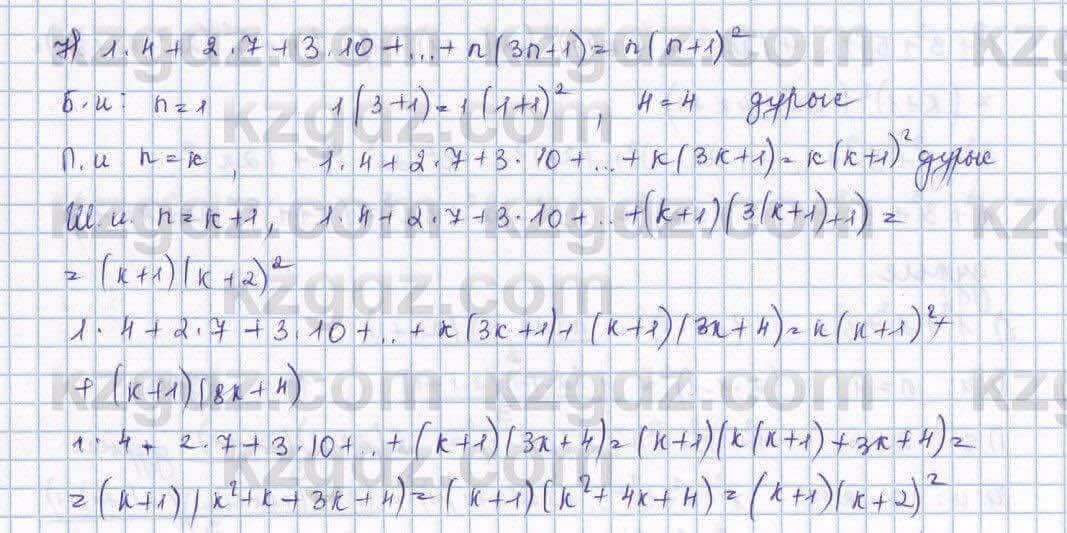 7) 1·4+2·7+3·10+...+n(3n+1)=n(n+1)²
Б.и: n=1 1(3+1)=1(1+1)², 4=4 дұрыс
П.и n=k, 1·4+2·7+3·10+...+k(3k+1)=k(k+1)² дұрыс
Ш.и. n=k+1, 1·4+2·7+3·10+..+(k+1)(3(k+1)+1)=
=(k+1)(k+2)²
1·4+2·7+3·10+..+k(3k+1)+(k+1)(3k+4)=k(k+1)²+
+(k+1)(3k+4)
1·4+2·7+3·10+..+(k+1)(3k+4)=(k+1)(k(k+1)+3k+4)=
=(k+1)(k²+k+3k+4)=(k+1)(k²+4k+4)=(k+1)(k+2)²
kzgdz.com